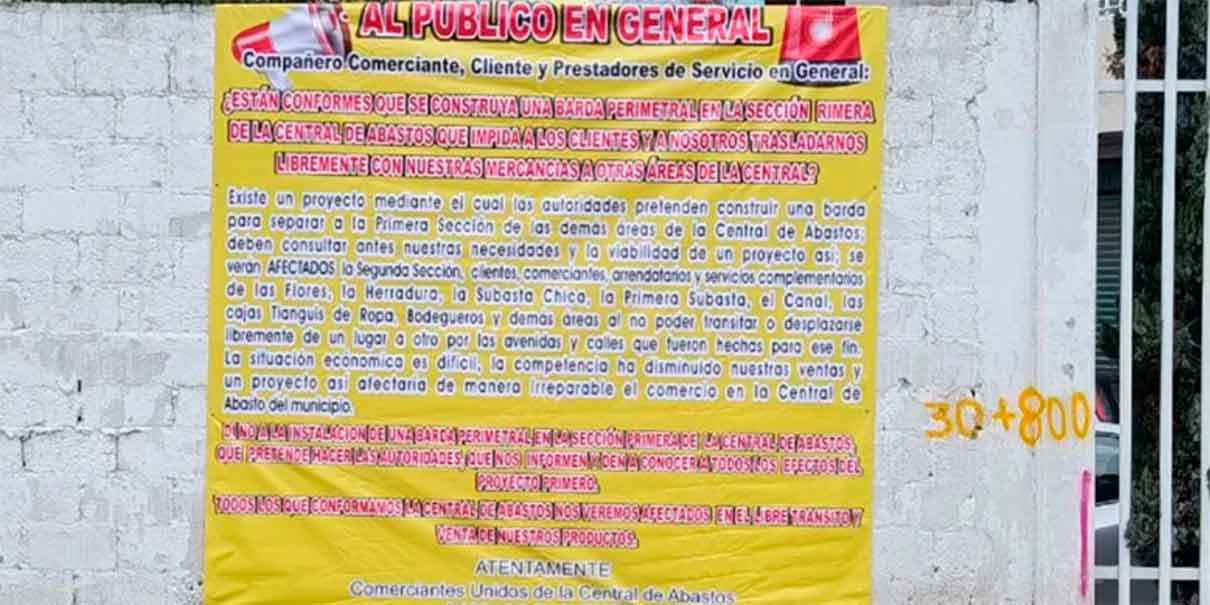 AL PÚBLICO EN GENERAL
Compañero Comerciante, Cliente y Prestadores de Servicio en General:
¿ESTÁN CONFORMES QUE SE CONSTRUYA UNA BARDA PERIMETRAL EN LA SECCIÓN RIMERA
DE LA CENTRAL DE ABASTOS QUE IMPIDA A LOS CLIENTES Y A NOSOTROS TRASLADARNOS
LIBREMENTE CON NUESTRAS MERCANCIAS A OTRAS ÁREAS DE LA CENTRAL?
Existe un proyecto mediante el cual las autoridades pretenden construir una barda
para separar a la Primera Sección de las demás áreas de la Central de Abastos;
deben consultar antes nuestras necesidades y la viabilidad de un proyecto así; se
verán AFECTADOS la Segunda Sección, clientes, comerciantes, arrendatarios y servicios complementarios
de las Flores, la Herradura, la Subasta Chica, la Primera Subasta, el Canal, las
cajas Tianguis de Ropa, Bodegueros y demás áreas al no poder transitar o desplazarse
libremente de un lugar a otro por las avenidas y calles que fueron hechas para ese fin.
La situación económica es difícil; la competencia ha disminuido nuestras ventas y
un proyecto así afectaría de manera irreparable el comercio en la Central de
Abasto del municipio.
DI NO A LA INSTALACIÓN DE UNA BARDA PERIMETRAL EN LA SECCIÓN PRIMERA DE LA CENTRAL DE ABASTOS,
QUE PRETENDE HACER LAS AUTORIDADES, QUE NOS INFORMEN Y DEN A CONOCER A TODOS LOS EFECTOS DEL
PROYECTO PRIMERO.
TODOS LOS QUE CONFORMAMOS LA CENTRAL DE ABASTOS NOS VEREMOS AFECTADOS EN EL LIBRE TRÁNSITO Y
VENTA DE NUESTROS PRODUCTOS.
ATENTAMENTE
Comerciantes Unidos de la Central de Abastos
30+800